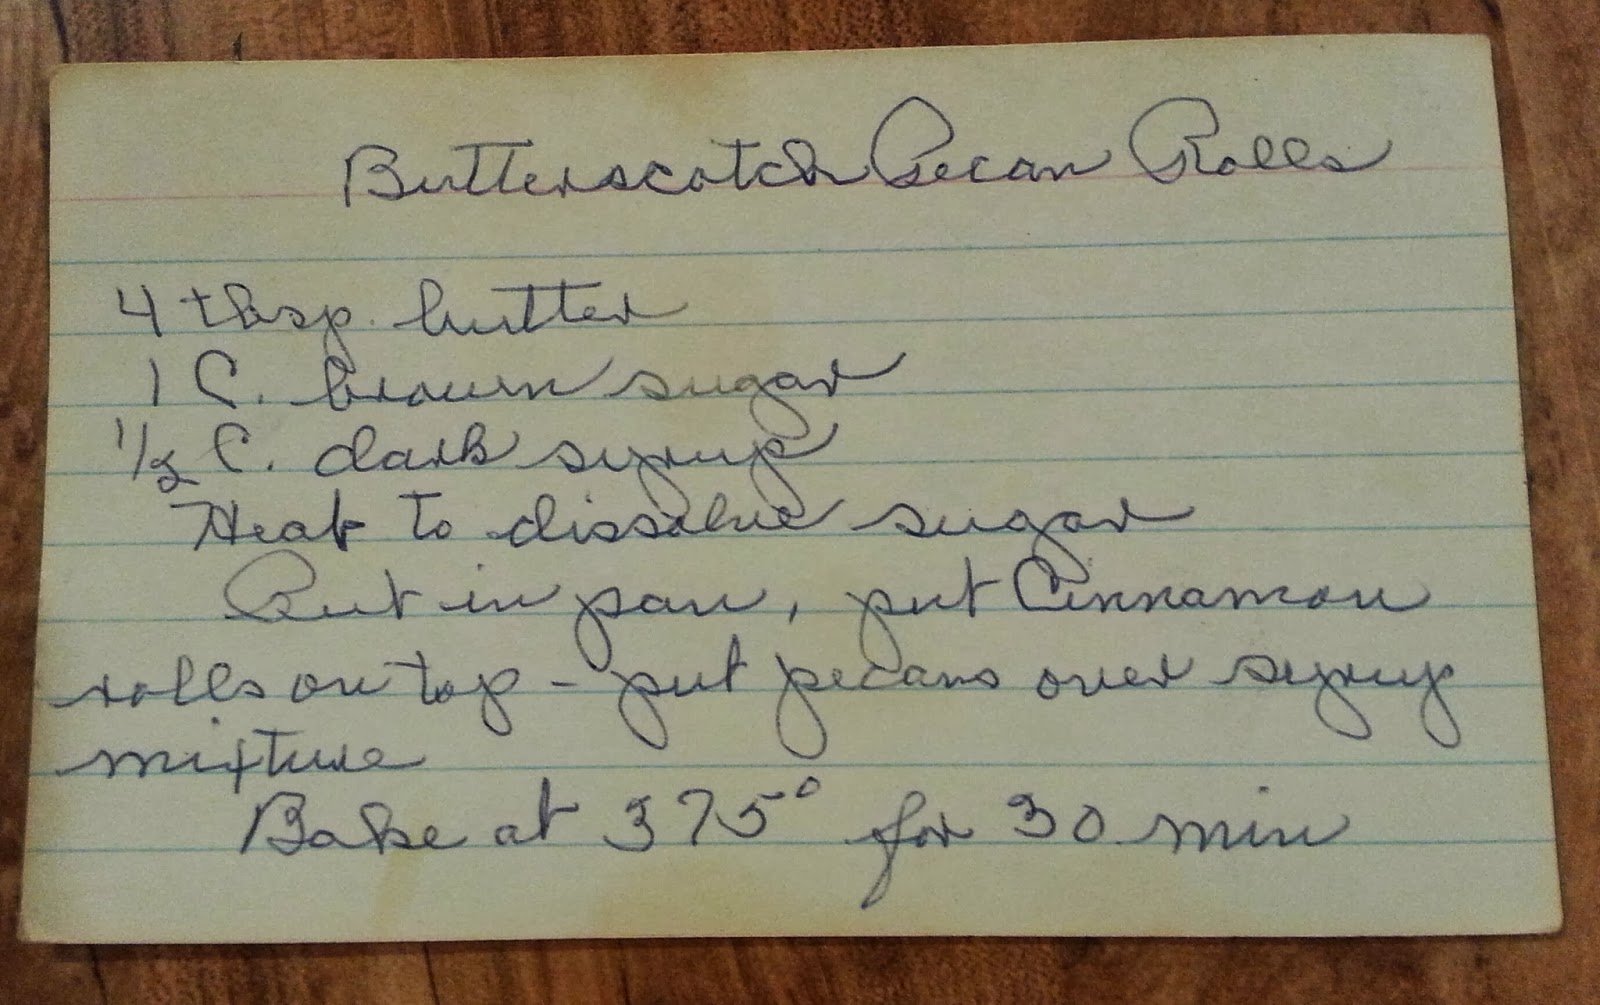 Butterscotch Pecan Rolls
4 tbsp. butter
1 C. brown sugar
1/2 C. dark syrup
Heat to dissolve sugar
Put in pan, put Cinnamon
rolls on top - put pecans over syrup
mixture
Bake at 375° for 30 min